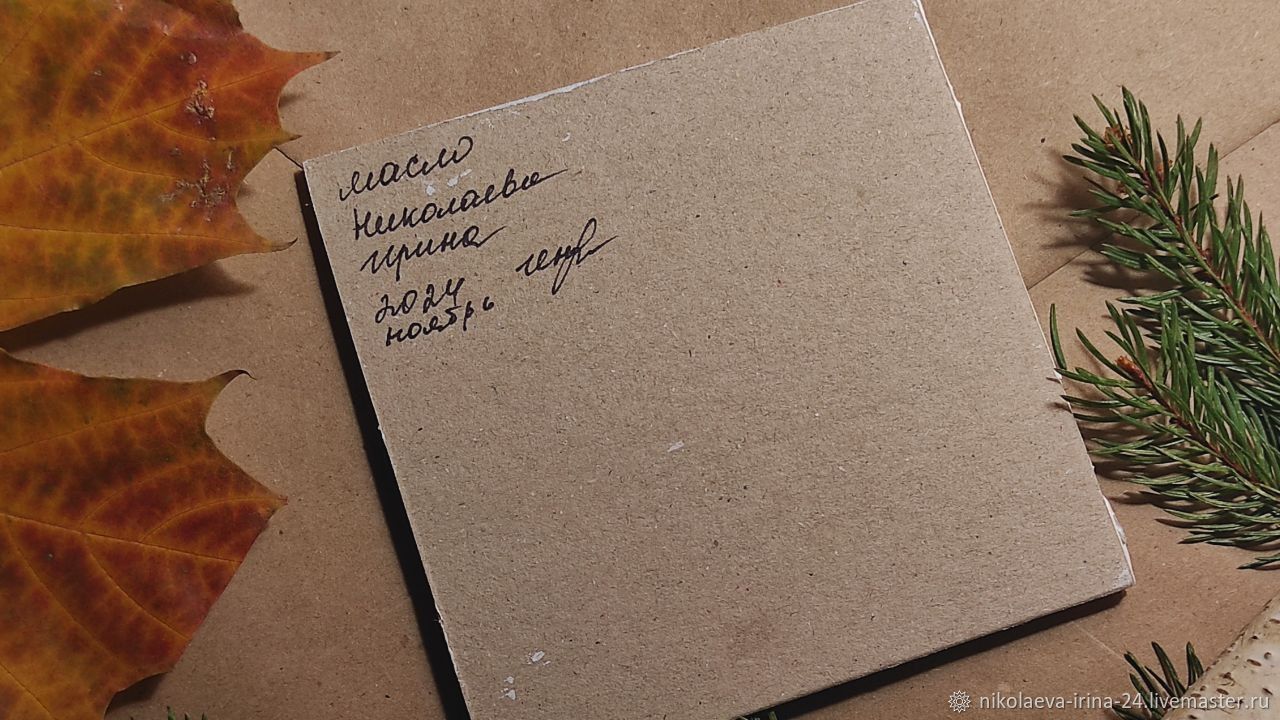 масло
Николаева
Ирина
2024
ноябрь
nikolaeva-irina-24.livemaster.ru